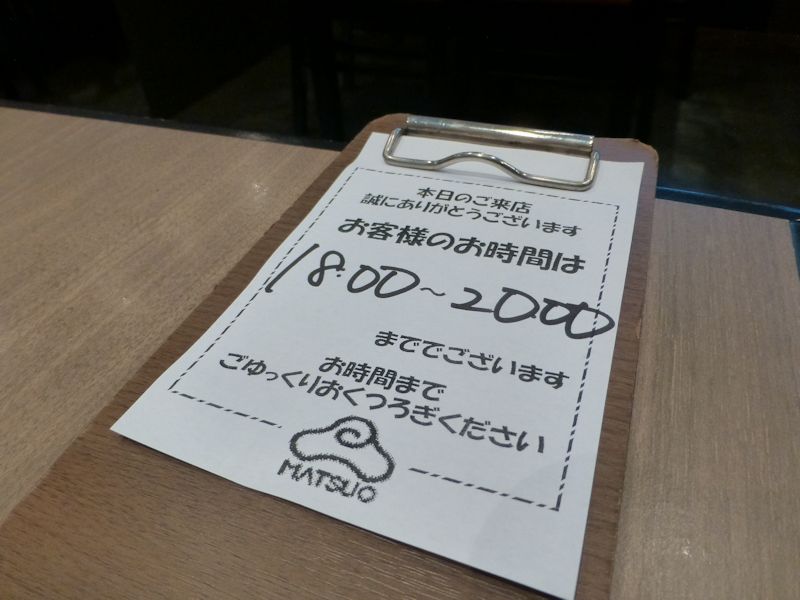 本日のご来店
誠にありがとうございます
お客様のお時間は
18:00~20:00
まででございます
お時間まで
ごゆっくりおくつろぎください
MATSUO